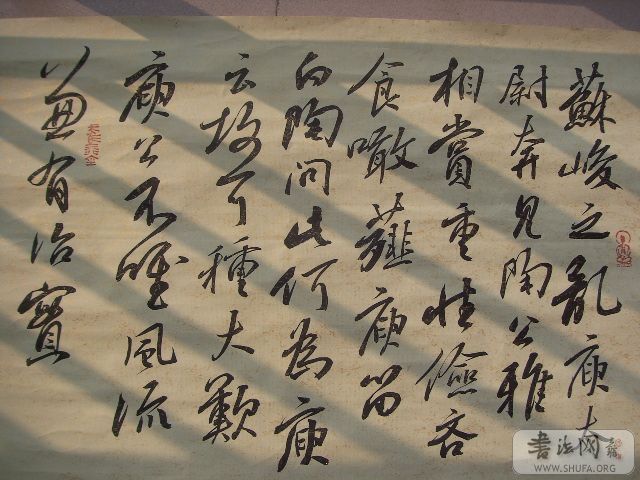 蘇峻之亂庾太
尉奔見陶公雅
相賞重性儉吝
食噉薤庾留
白陶問此何為庾
云故可種大歎
庾公不唯風流
兼有治實
書法网
WWW.SHUFA.ORG